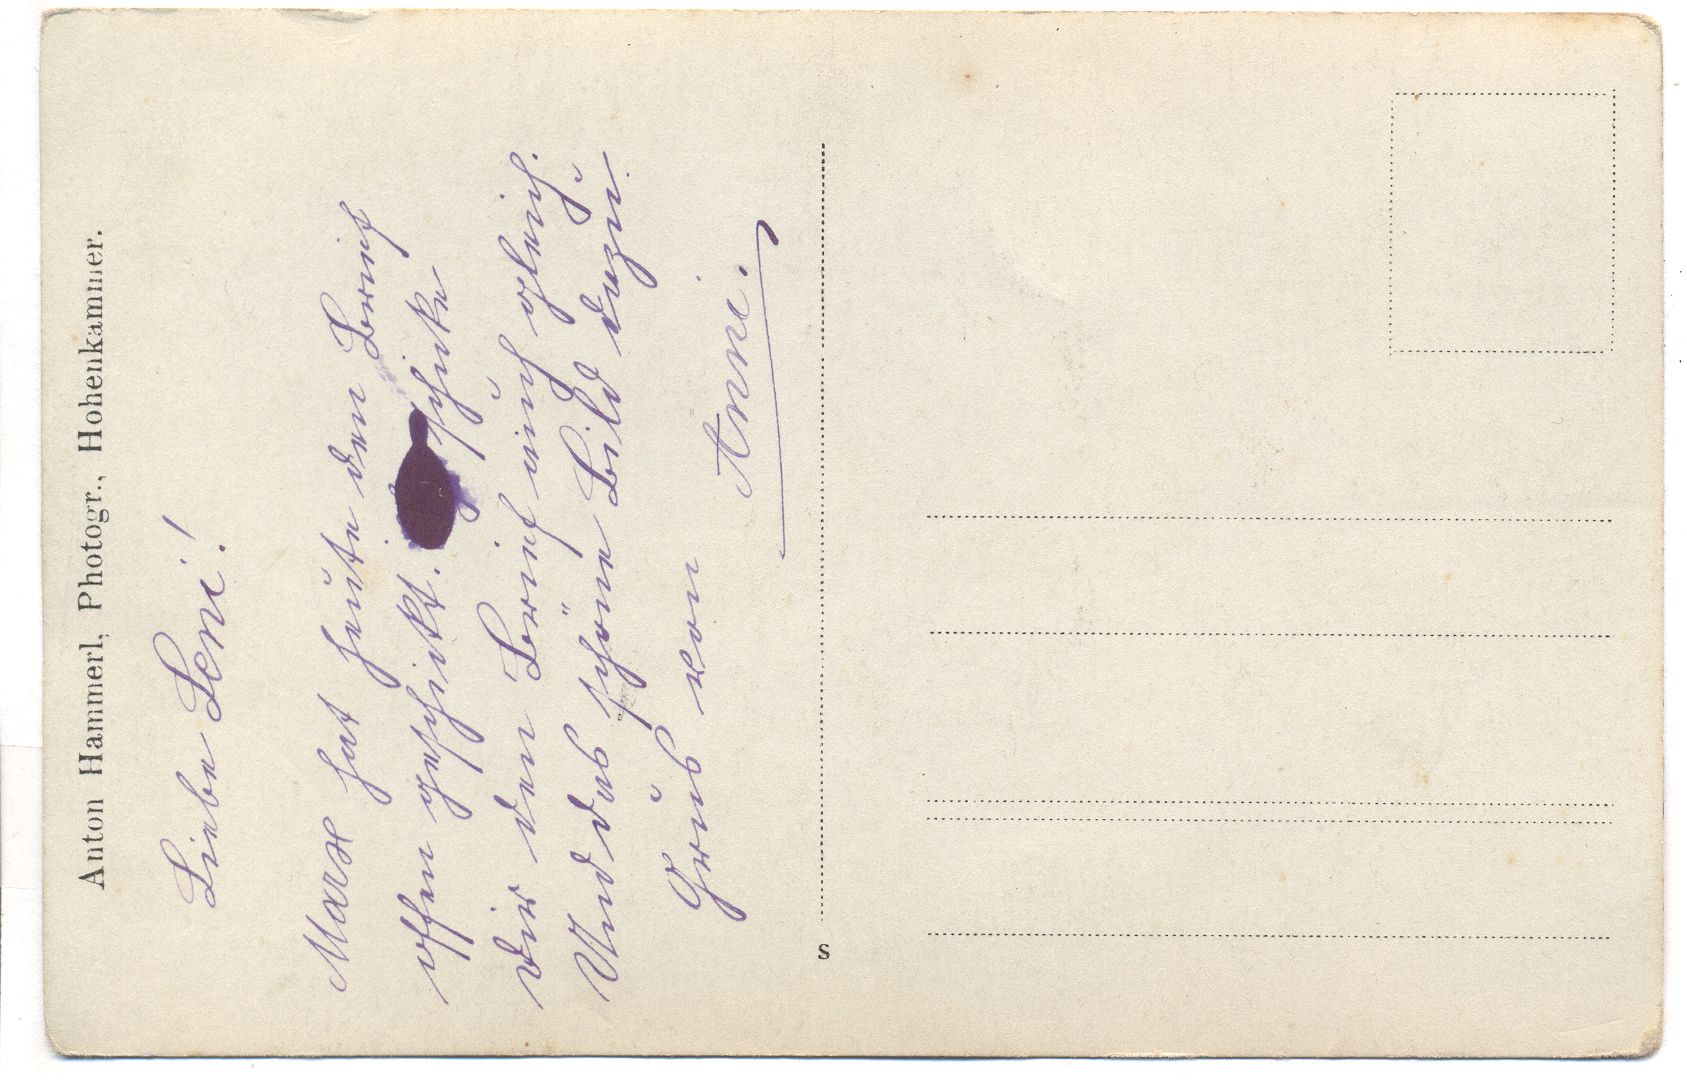 Anton Hammerl, Photogr., Hohenkammer.
Liebe Leni!
Marx hat heute den Brief
offen geschickt. schicke
dir den Brief auch gleich.
Und das schöne Bild dazu.
Gruß von
Anni.
S